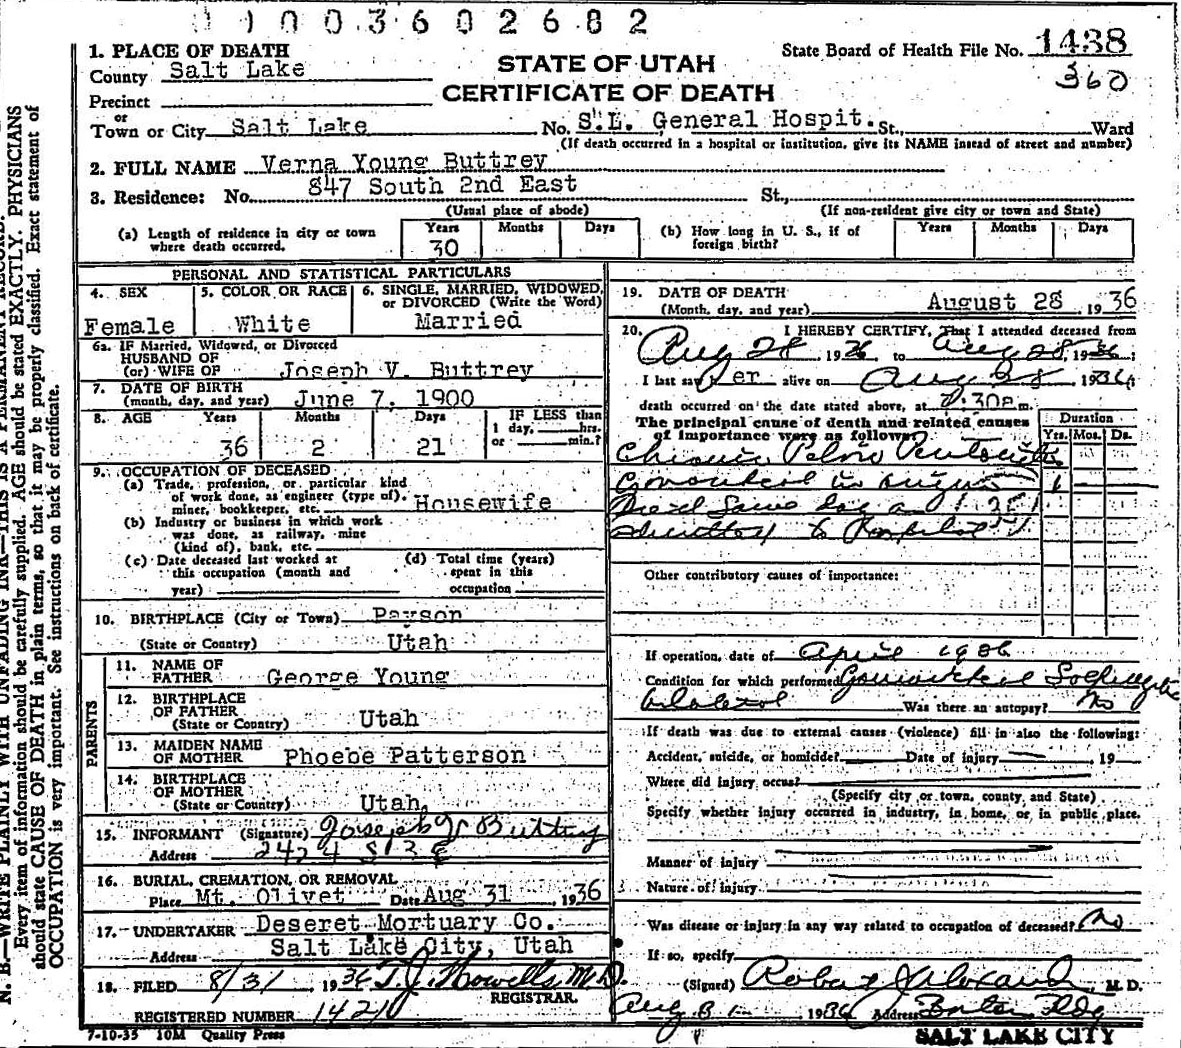 1 0 0 3 6 0 2 6 8 2
1. PLACE OF DEATH
County Salt Lake
Precinct
or
Town or City Salt Lake No. S.L. General Hospit. St., Ward
(If death occurred in a hospital or institution, give its NAME instead of street and number)
STATE OF UTAH
CERTIFICATE OF DEATH
State Board of Health File No. 1438
360
2. FULL NAME Verna Young Buttrey
3. Residence: No. 847 South 2nd East St.,
(Usual place of abode) (If non-resident give city or town and State)
(a) Length of residence in city or town where death occurred. Years 30 Months Days
(b) How long in U. S., if of foreign birth? Years Months Days
PERSONAL AND STATISTICAL PARTICULARS
4. SEX Female
5. COLOR OR RACE White
6. SINGLE, MARRIED, WIDOWED, or DIVORCED (Write the Word) Married
6a. IF Married, Widowed, or Divorced
HUSBAND OF
(or) WIFE OF Joseph V. Buttrey
7. DATE OF BIRTH
(month, day, and year) June 7, 1900
8. AGE Years 36 Months 2 Days 21 IF LESS than 1 day, hrs. or min.?
9. OCCUPATION OF DECEASED
(a) Trade, profession, or particular kind
of work done, as engineer (type of),
miner, bookkeeper, etc. Housewife
(b) Industry or business in which work
was done, as railway, mine
(kind of), bank, etc.
(c) Date deceased last worked at
this occupation (month and
year)
(d) Total time (years)
spent in this
occupation
10. BIRTHPLACE (City or Town) Payson
(State or Country) Utah
PARENTS
11. NAME OF
FATHER George Young
12. BIRTHPLACE
OF FATHER
(State or Country) Utah
13. MAIDEN NAME
OF MOTHER Phoebe Patterson
14. BIRTHPLACE
OF MOTHER
(State or Country) Utah.
15. INFORMANT (Signature) Joseph V Buttrey
Address
16. BURIAL, CREMATION, OR REMOVAL
Place Mt. Olivet Date Aug 31, 1936
17. UNDERTAKER Deseret Mortuary Co.
Address Salt Lake City, Utah
18. FILED 8/31 1936 T. J. Howells, M.D.
REGISTRAR.
REGISTERED NUMBER
7-10-35 10M Quality Press
19. DATE OF DEATH
(Month, day, and year) August 28, 1936
20. I HEREBY CERTIFY, That I attended deceased from
Aug 28, 1936 to Aug 28, 1936;
I last saw her alive on Aug 28 1936;
death occurred on the date stated above, at :30 m.
The principal cause of death and related causes
of importance were as follows:
Duration
Yrs. Mos. Ds.
Chronic Pelvic
to Hospital
Other contributory causes of importance:
If operation, date of April 1936
Condition for which performed Gonorrheal
bilateral Was there an autopsy? No
If death was due to external causes (violence) fill in also the following:
Accident, suicide, or homicide? Date of injury 19
Where did injury occur?
(Specify city or town, county, and State)
Specify whether injury occurred in industry, in home, or in public place.
Manner of injury
Nature of injury
Was disease or injury in any way related to occupation of deceased? No
If so, specify
(Signed) Robert J Alexander, M. D.
Aug 31 1936 Address Bldg
SALT LAKE CITY
N. B.—WRITE PLAINLY WITH UNFADING INK—THIS IS A PERMANENT RECORD.
Every item of information should be carefully supplied. AGE should be stated EXACTLY. PHYSICIANS
should state CAUSE OF DEATH in plain terms, so that it may be properly classified. Exact statement of
OCCUPATION is very important. See instructions on back of certificate.